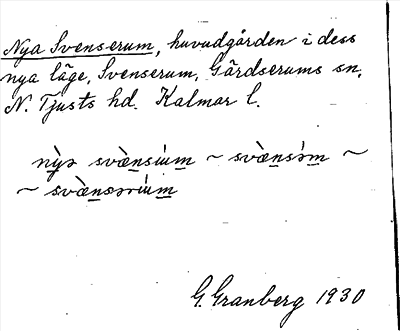 Nya Svenserum, huvudgården i dess
nya läge, Svenserum, Gärdserums sn,
N. Tjusts hd. Kalmar l.
nỳə svæ̀nsiúm ~ svæ̀nsə́m ~
~ svæ̀nsəriúm
G. Granberg 1930